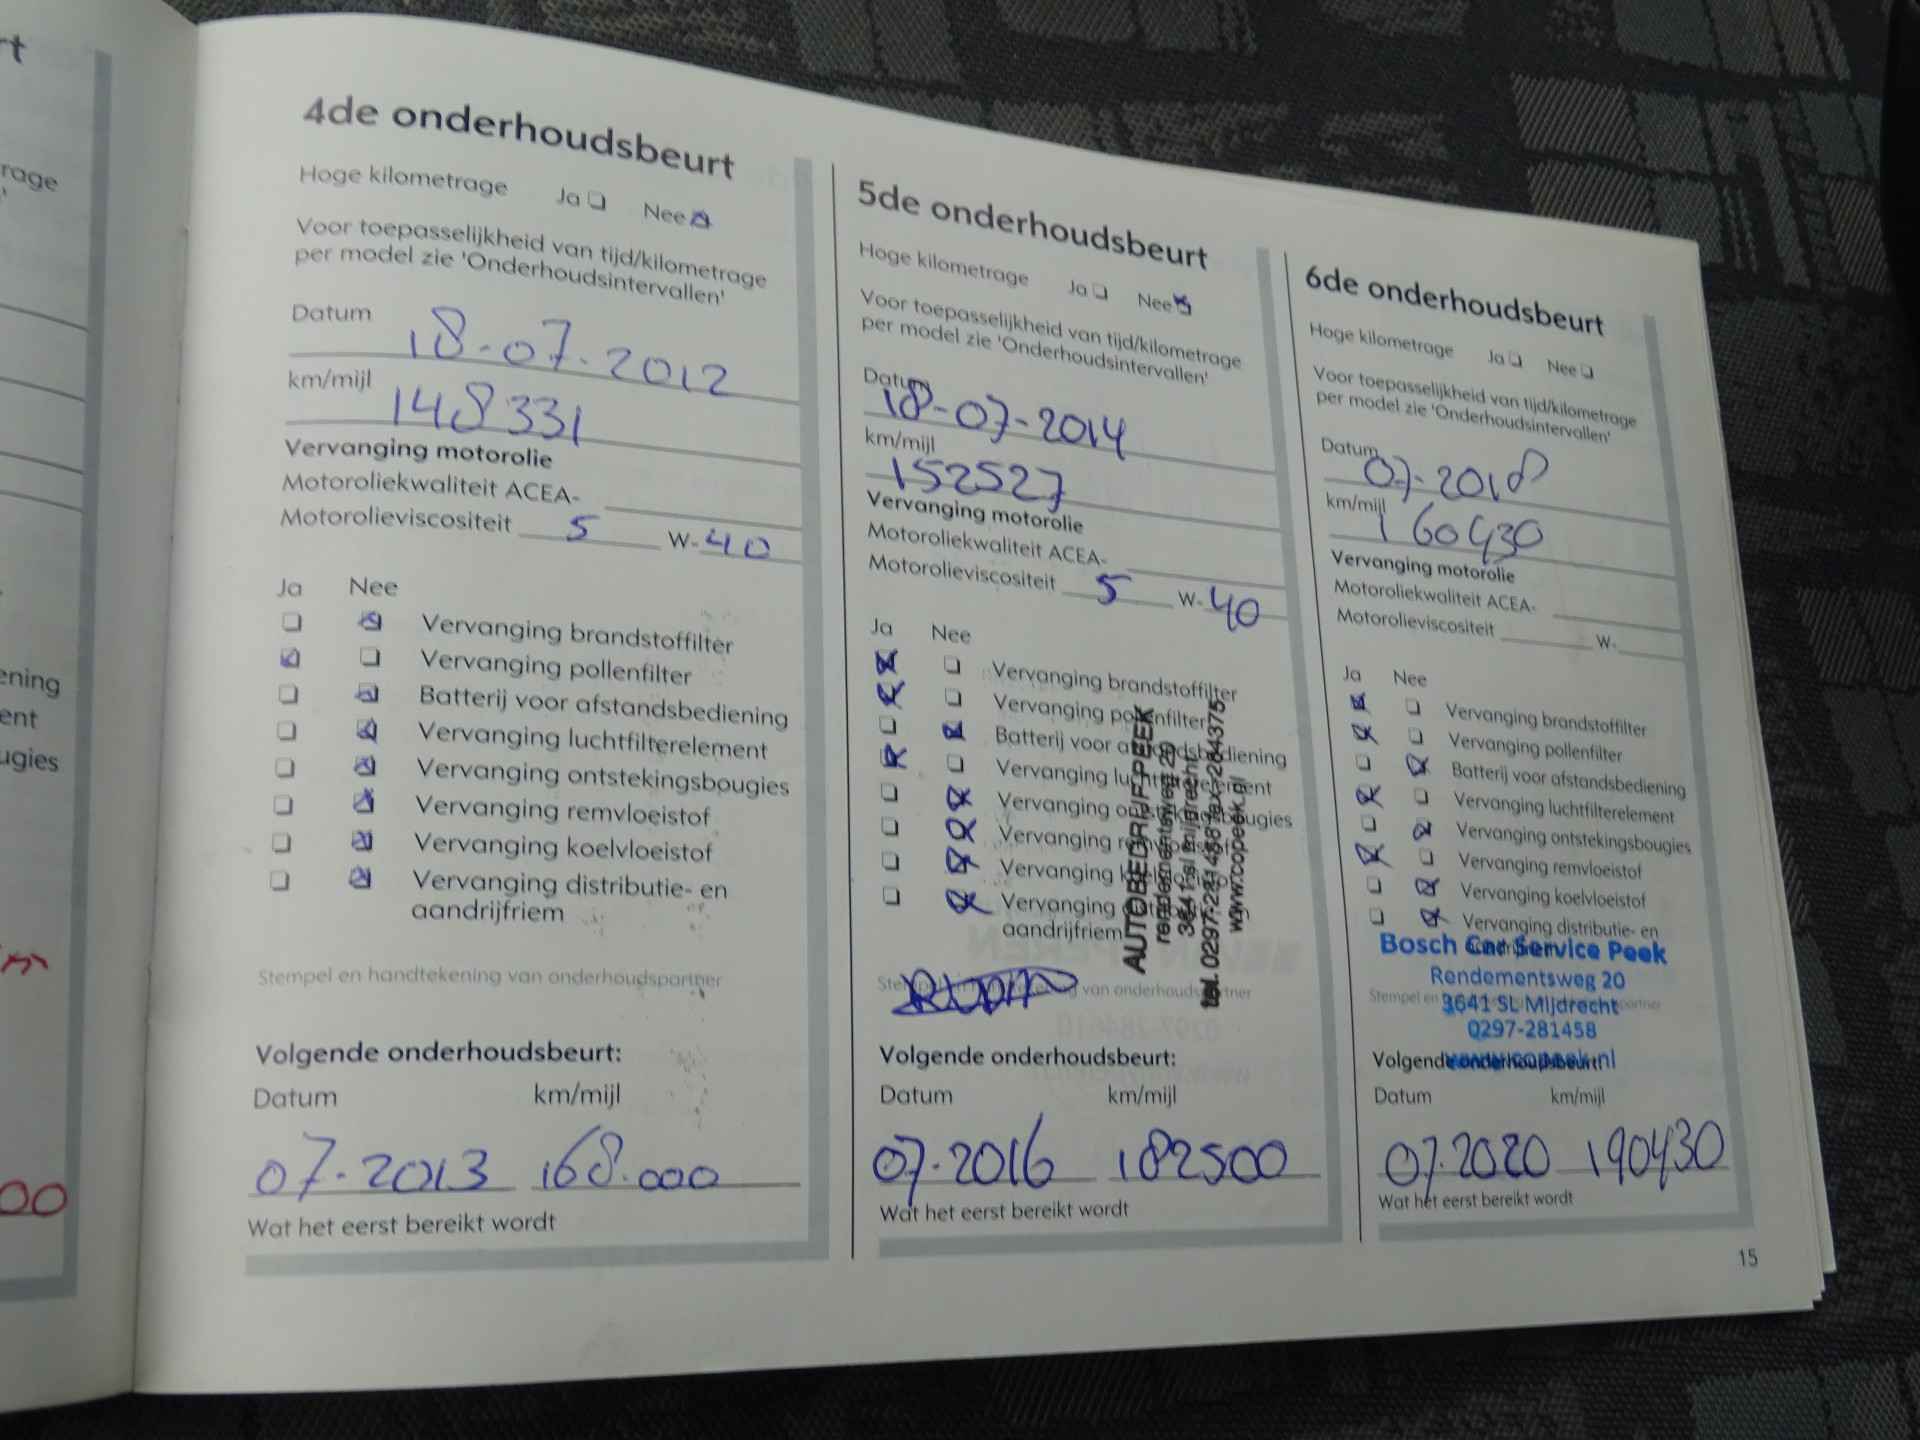 rt
rage
ening
ent
ugies
00
4de onderhoudsbeurt
Hoge kilometrage Ja Nee
Voor toepasselijkheid van tijd/kilometrage
per model zie 'Onderhoudsintervallen'
Datum 18-07-2012
km/mijl 148331
Vervanging motorolie
Motoroliekwaliteit ACEA-
Motorolieviscositeit 5 W-40
Ja Nee
Vervanging brandstoffilter
Vervanging pollenfilter
Batterij voor afstandsbediening
Vervanging luchtfilterelement
Vervanging ontstekingsbougies
Vervanging remvloeistof
Vervanging koelvloeistof
Vervanging distributie- en
aandrijfriem
Stempel en handtekening van onderhoudspartner
Volgende onderhoudsbeurt:
Datum km/mijl
07-2013 168.000
Wat het eerst bereikt wordt
5de onderhoudsbeurt
Hoge kilometrage Ja Nee
Voor toepasselijkheid van tijd/kilometrage
per model zie 'Onderhoudsintervallen'
Datum 18-07-2014
km/mijl 152527
Vervanging motorolie
Motoroliekwaliteit ACEA-
Motorolieviscositeit 5 W-40
Ja Nee
Vervanging brandstoffilter
Vervanging pollenfilter
Batterij voor afstandsbediening
Vervanging luchtfilterelement
Vervanging ontstekingsbougies
Vervanging remvloeistof
Vervanging koelvloeistof
Vervanging distributie- en
aandrijfriem
AUTOBEDRIJF PEEK
rendementsweg 20
3641 sl mijdrecht
tel. 0297-281458 fax-284375
www.copeek.nl
Stempel en handtekening van onderhoudspartner
Volgende onderhoudsbeurt:
Datum km/mijl
07-2016 182500
Wat het eerst bereikt wordt
6de onderhoudsbeurt
Hoge kilometrage Ja Nee
Voor toepasselijkheid van tijd/kilometrage
per model zie 'Onderhoudsintervallen'
Datum 07-2018
km/mijl 160430
Vervanging motorolie
Motoroliekwaliteit ACEA-
Motorolieviscositeit W-
Ja Nee
Vervanging brandstoffilter
Vervanging pollenfilter
Batterij voor afstandsbediening
Vervanging luchtfilterelement
Vervanging ontstekingsbougies
Vervanging remvloeistof
Vervanging koelvloeistof
Vervanging distributie- en
Bosch Car Service Peek
Rendementsweg 20
Stempel en partner
3641 SL Mijdrecht
0297-281458
www.copeek.nl
Volgende onderhoudsbeurt:
Datum km/mijl
07-2020 190430
Wat het eerst bereikt wordt
15